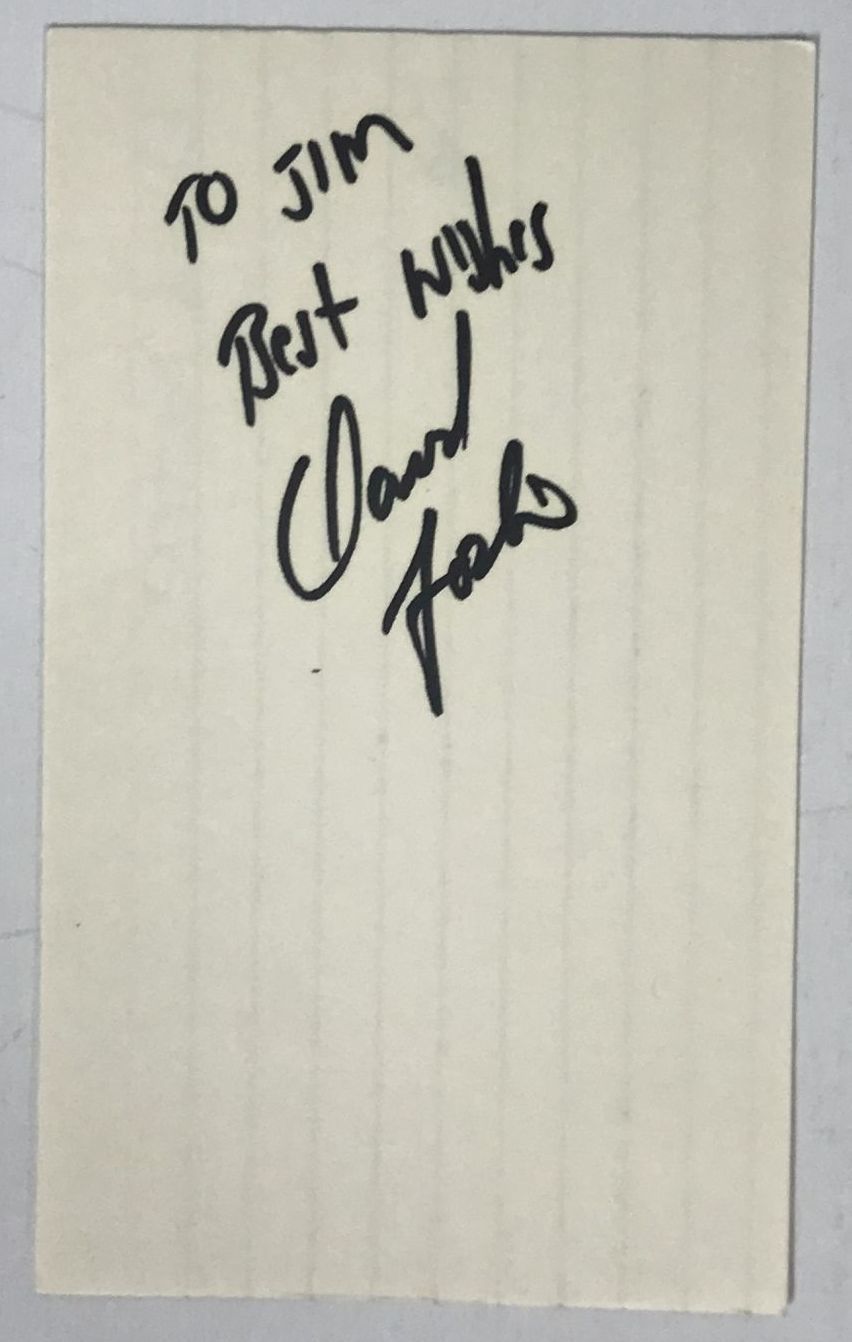 TO JIM
Best Wishes
David